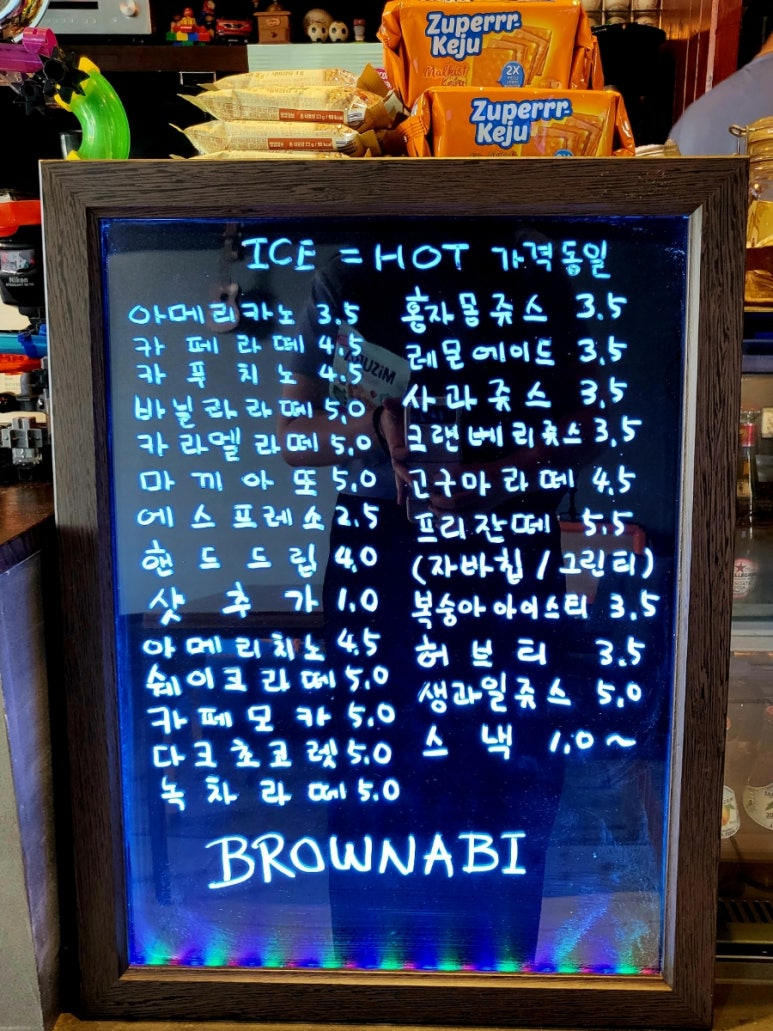 Zuperrr-
Keju
Malkist
2X
Zuperrr-
Keju
Nikon
ICE = HOT 가격동일
아메리카노 3.5
카페라떼 4.5
카푸치노 4.5
바닐라라떼 5.0
카라멜라떼 5.0
마끼아또 5.0
에스프레소 2.5
핸드드립 4.0
샷추가 1.0
아메리치노 4.5
쉐이크라떼 5.0
카페모카 5.0
다크초코렛 5.0
녹차라떼 5.0
홍자몽쥬스 3.5
레몬에이드 3.5
사과쥬스 3.5
크랜베리쥬스 3.5
고구마라떼 4.5
프리잔떼 5.5
(자바칩 / 그린티)
복숭아아이스티 3.5
허브티 3.5
생과일쥬스 5.0
스낵 1.0~
BROWNABI